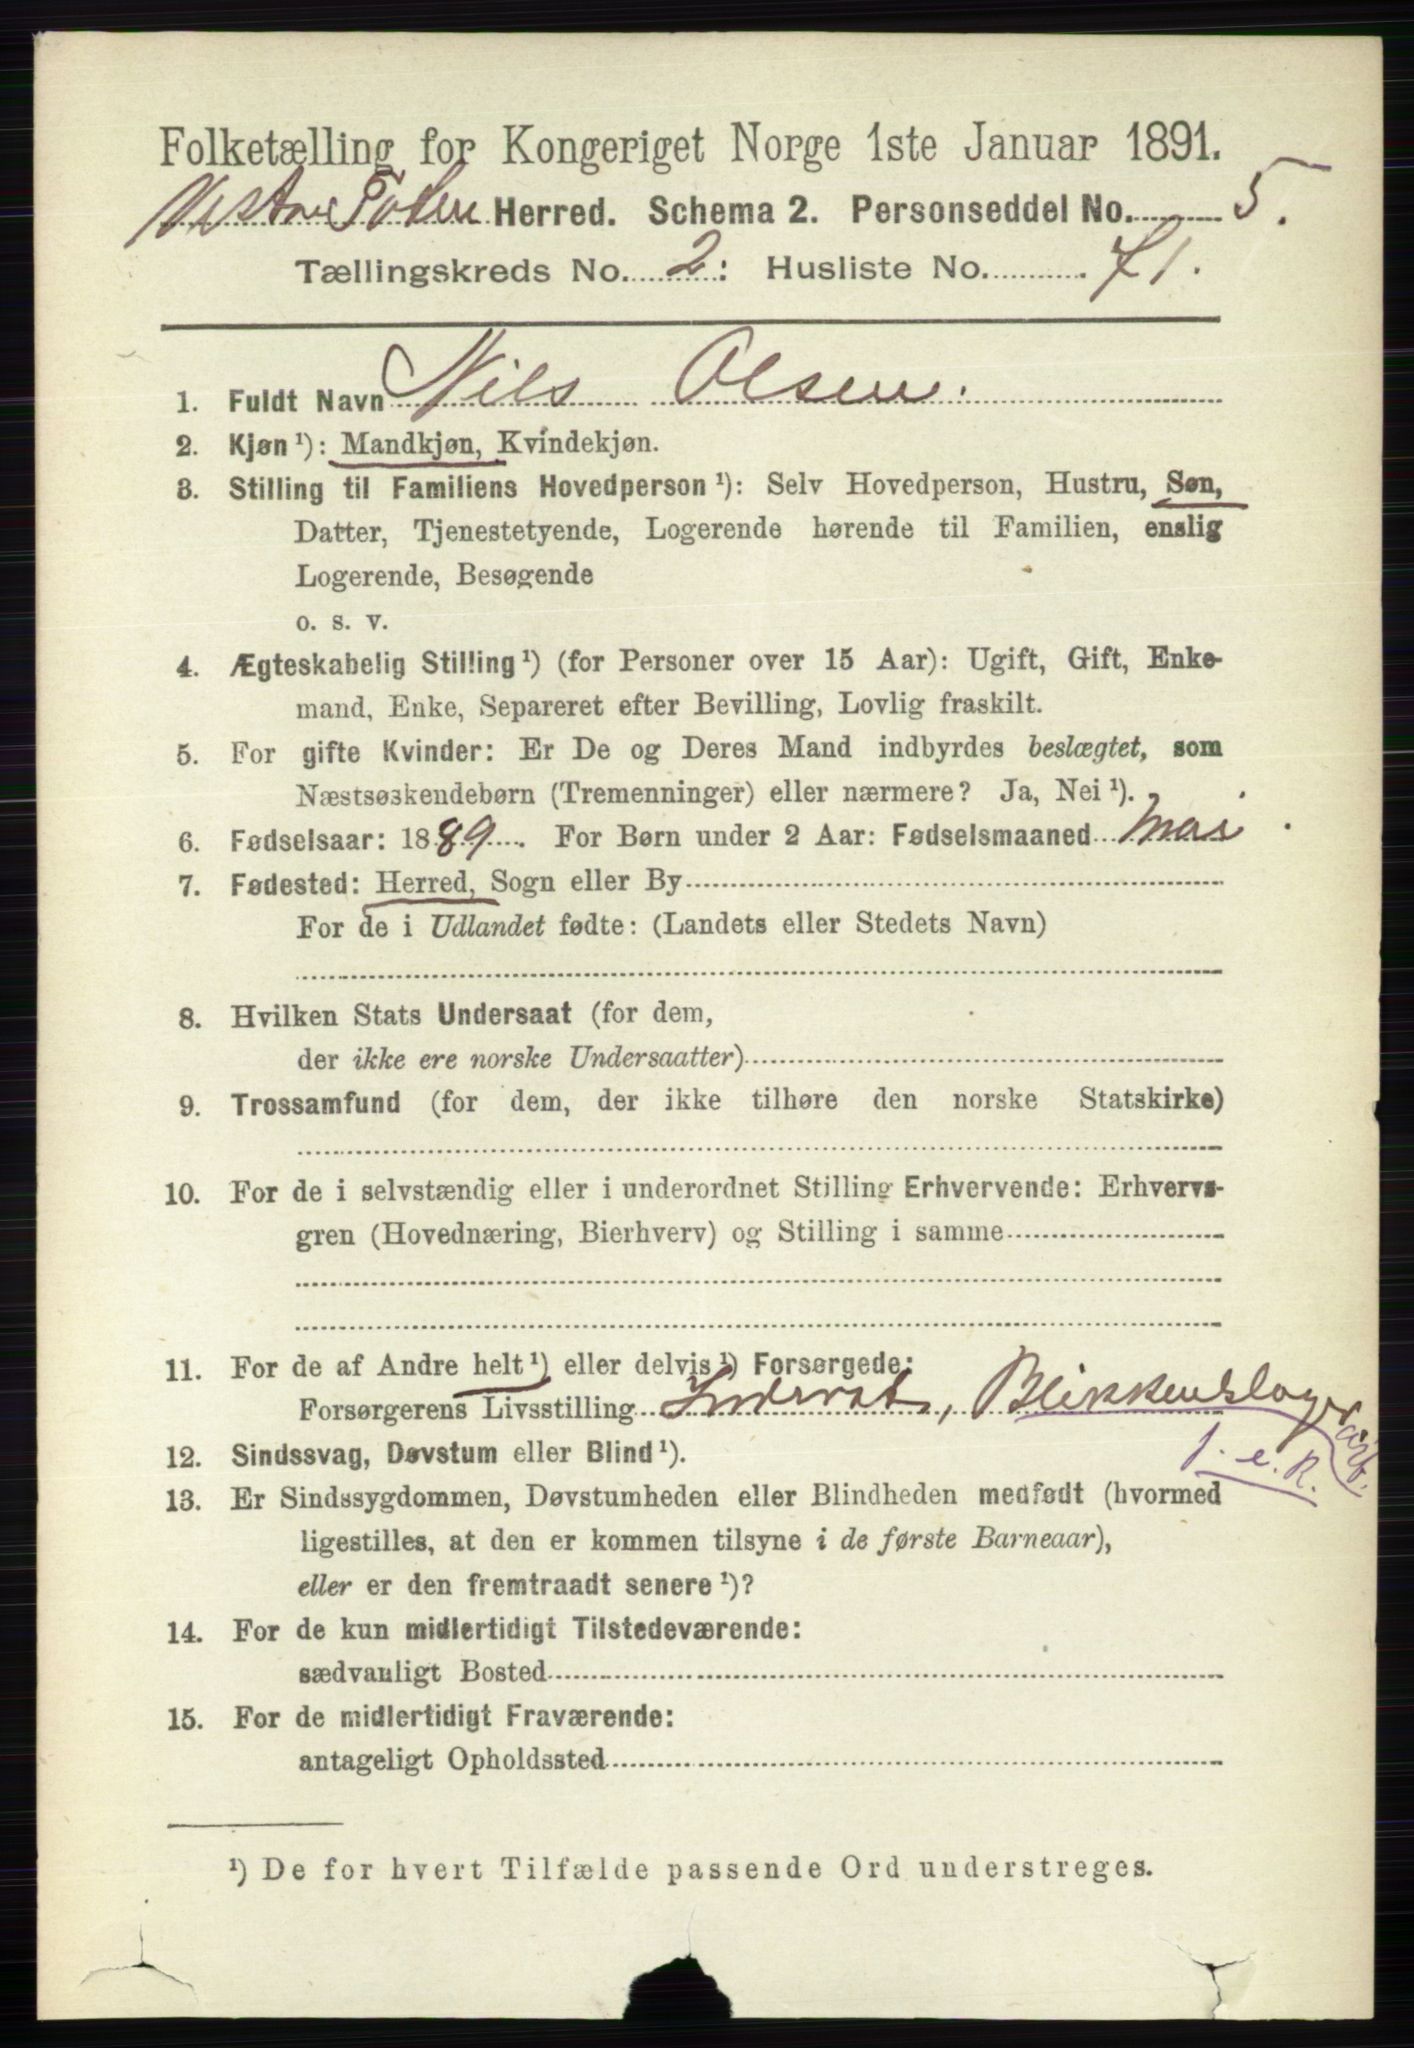 Folketælling for Kongeriget Norge 1ste Januar 1891.
Vestre Toten Herred. Schema 2. Personseddel No. 5.
Tællingskreds No. 2: Husliste No. 71.
1. Fuldt Navn Nils Olsen.
2. Kjøn ¹): Mandkjøn, Kvindekjøn.
3. Stilling til Familiens Hovedperson ¹): Selv Hovedperson, Hustru, Søn,
Datter, Tjenestetyende, Logerende hørende til Familien, enslig
Logerende, Besøgende
o. s. v.
4. Ægteskabelig Stilling ¹) (for Personer over 15 Aar): Ugift, Gift, Enke-
mand, Enke, Separeret efter Bevilling, Lovlig fraskilt.
5. For gifte Kvinder: Er De og Deres Mand indbyrdes beslægtet, som
Næstsøskendebørn (Tremenninger) eller nærmere? Ja, Nei ¹).
6. Fødselsaar: 1889. For Børn under 2 Aar: Fødselsmaaned Mai.
7. Fødested: Herred, Sogn eller By
For de i Udlandet fødte: (Landets eller Stedets Navn)
8. Hvilken Stats Undersaat (for dem,
der ikke ere norske Undersaatter)
9. Trossamfund (for dem, der ikke tilhøre den norske Statskirke)
10. For de i selvstændig eller i underordnet Stilling Erhvervende: Erhvervs-
gren (Hovednæring, Bierhverv) og Stilling i samme
11. For de af Andre helt ¹) eller delvis ¹) Forsørgede:
Forsørgerens Livsstilling Inderst, Blikkenslager arb.
f. e. R.
12. Sindssvag, Døvstum eller Blind ¹).
13. Er Sindssygdommen, Døvstumheden eller Blindheden medfødt (hvormed
ligestilles, at den er kommen tilsyne i de første Barneaar),
eller er den fremtraadt senere ¹)?
14. For de kun midlertidigt Tilstedeværende:
sædvanligt Bosted
15. For de midlertidigt Fraværende:
antageligt Opholdssted
¹) De for hvert Tilfælde passende Ord understreges.